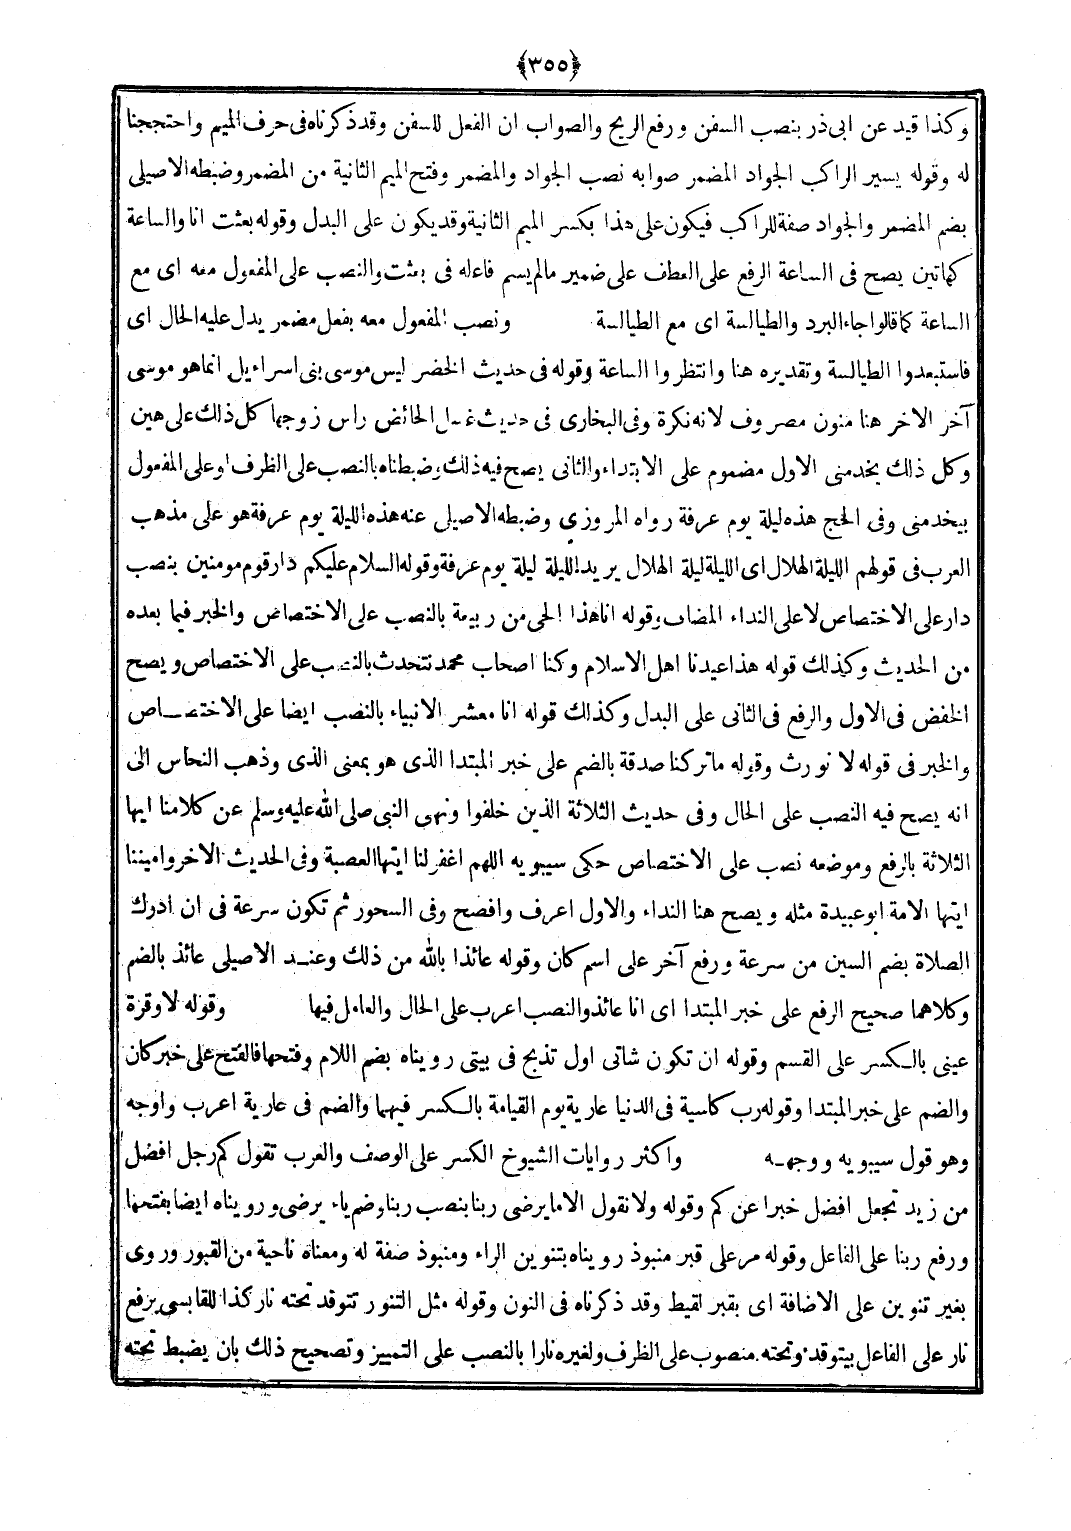 ﴿٣٥٥﴾
وكذا قيد عن ابى ذر بنصب السفن ورفع الريح والصواب ان الفعل للسفن وقد ذكرناه فى حرف الميم واحتججنا
له وقوله يسير الراكب الجواد المضمر صوابه نصب الجواد والمضمر وفتح الميم الثانية من المضمر وضبطه الاصيلى
بضم المضمر والجواد صفة للراكب فيكون على هذا بكسر الميم الثانية وقد يكون على البدل وقوله بعثت انا والساعة
كهاتين يصح فى الساعة الرفع على العطف على ضمير مالم يسم فاعله فى بعثت والنصب على المفعول معه اى مع
الساعة كما قالوا جاء البرد والطيالسة اى مع الطيالسة ونصب المفعول معه بفعل مضمر يدل عليه الحال اى
فاستبعدوا الطيالسة وتقديره هنا وانتظروا الساعة وقوله فى حديث الخضر ليس موسى بنى اسراءيل انما هو موسى
آخر الاخر هنا منون مصروف لانه نكرة وفى البخارى فى حديث غسل الحائض راس زوجها كل ذلك على هين
وكل ذلك يخدمنى الاول مضموم على الابتداء والثانى يصح فيه ذلك وضبطناه بالنصب على الظرف او على المفعول
بيخدمنى وفى الحج هذه ليلة يوم عرفة رواه المروزى وضبطه الاصيلى عنه هذه الليلة يوم عرفة هو على مذهب
العرب فى قولهم الليلة الهلال اى الليلة ليلة الهلال يريد الليلة ليلة يوم عرفة وقوله السلام عليكم دار قوم مومنين بنصب
دار على الاختصاص لا على النداء المضاف وقوله انا هذا الحى من ربيعة بالنصب على الاختصاص والخبر فيما بعده
من الحديث وكذلك قوله هذا عيدنا اهل الاسلام وكنا اصحاب محمد نتحدث بالنصب على الاختصاص ويصح
الخفض فى الاول والرفع فى الثانى على البدل وكذلك قوله انا معشر الانبياء بالنصب ايضا على الاختصاص
والخبر فى قوله لا نورث وقوله ما تركنا صدقة بالضم على خبر المبتدا الذى هو بمعنى الذى وذهب النحاس الى
انه يصح فيه النصب على الحال وفى حديث الثلاثة الذين خلفوا ونهى النبى صلى الله عليه وسلم عن كلامنا ايها
الثلاثة بالرفع وموضعه نصب على الاختصاص حكى سيبويه اللهم اغفر لنا ايتها العصبة وفى الحديث الاخر واميننا
ايتها الامة ابو عبيدة مثله ويصح هنا النداء والاول اعرف وافصح وفى السحور ثم تكون سرعة فى ان ادرك
الصلاة بضم السين من سرعة ورفع آخر على اسم كان وقوله عائذا بالله من ذلك وعند الاصيلى عائذ بالضم
وكلاهما صحيح الرفع على خبر المبتدا اى انا عائذ والنصب اعرب على الحال والعامل فيها وقوله لا وقرة
عينى بالكسر على القسم وقوله ان تكون شاتى اول تذبح فى بيتى رويناه بضم اللام وفتحها فالفتح على خبر كان
والضم على خبر المبتدا وقوله رب كاسية فى الدنيا عارية يوم القيامة بالكسر فيهما والضم فى عارية اعرب واوجه
وهو قول سيبويه ووجهه واكثر روايات الشيوخ الكسر على الوصف والعرب تقول كم رجل افضل
من زيد تجعل افضل خبرا عن كم وقوله ولا نقول الا ما يرضى ربنا بنصب ربنا وضم ياء يرضى ورويناه ايضا بفتحها
ورفع ربنا على الفاعل وقوله مر على قبر منبوذ رويناه بتنوين الراء ومنبوذ صفة له ومعناه ناحية من القبور وروى
بغير تنوين على الاضافة اى بقبر لقيط وقد ذكرناه فى النون وقوله مثل التنور تتوقد تحته نار كذا للقابسى برفع
نار على الفاعل بيتوقد وتحته منصوب على الظرف ولغيره نارا بالنصب على التمييز وتصحيح ذلك بان يضبط تحته